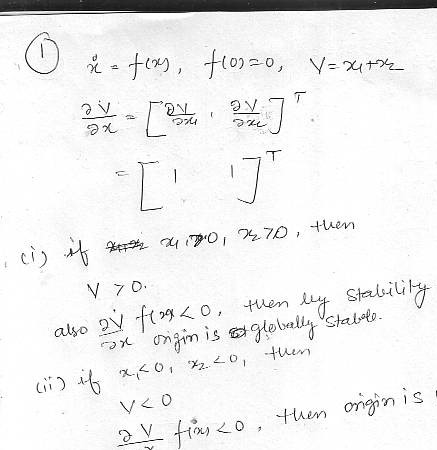 ① ẋ = f(x), f(0)=0, V=x₁+x₂
∂V/∂x = [∂V/∂x₁ , ∂V/∂x₂]ᵀ
= [1 1]ᵀ
(i) if x₁>0, x₂>0, then
V>0.
also ∂V/∂x f(x)<0, then by stability
origin is globally stable.
(ii) if x₁<0, x₂<0, then
V<0
∂V/x f(x)<0, then origin is